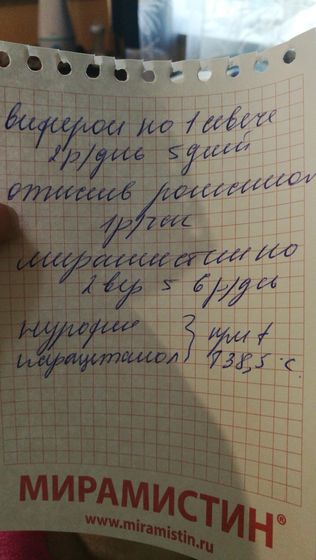 виферон по 1 свече
2р/день 5 дней
отпаив
1р/час
мирамистин по
2 впр 5 6 р/день
нурофен } при t
парацетамол } 38,5 °C.
МИРАМИСТИН®
www.miramistin.ru